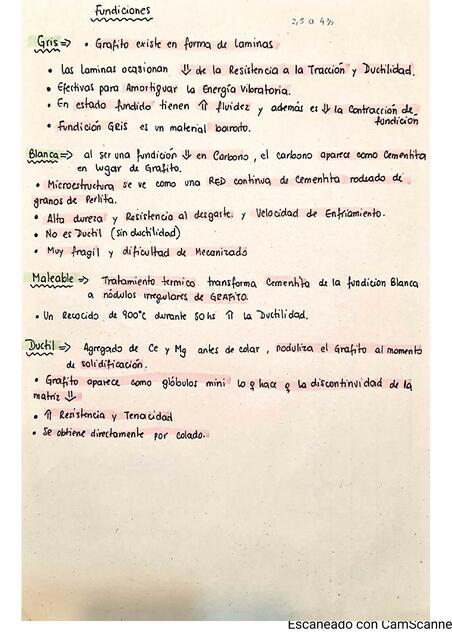 Fundiciones
2,5 a 4%
Gris => • Grafito existe en forma de laminas
• Las laminas ocasionan ⇓ de la Resistencia a la Tracción y Ductilidad.
• Efectivas para Amortiguar la Energía Vibratoria.
• En estado fundido tienen ⇑ fluidez y además es ⇓ la contracción de
fundición
• Fundición GRIS es un material barato.
Blanca => al ser una fundición ⇓ en Carbono, el carbono aparece como Cementita
en lugar de Grafito.
• Microestructura se ve como una RED continua de Cementita rodeado de
granos de Perlita.
• Alta dureza y Resistencia al desgaste y Velocidad de Enfriamiento.
• No es Ductil (sin ductilidad)
• Muy fragil y dificultad de Mecanizado
Maleable => Tratamiento termico transforma Cementita de la fundicion Blanca
a nódulos irregulares de GRAFITO.
• Un Recocido de 900°C durante 50hs ⇑ la Ductilidad.
Ductil => Agregado de Ce y Mg antes de colar, noduliza el Grafito al momento
de solidificación.
• Grafito aparece como glóbulos mini lo q hace q la discontinuidad de la
matriz ⇓
• ⇑ Resistencia y Tenacidad
• Se obtiene directamente por colado.
Escaneado con CamScanne